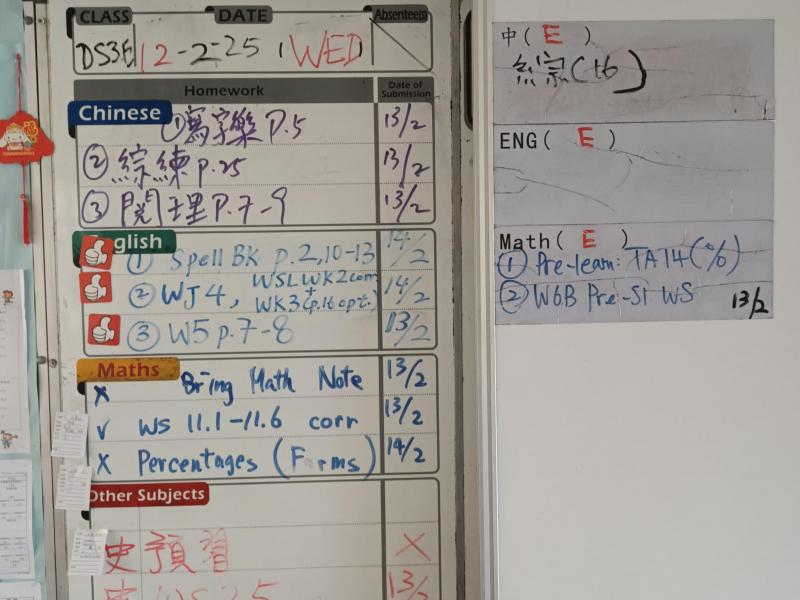 CLASS DATE Absentee(s)
DS3E 12-2-25 (WED)
Homework Date of Submission
Chinese
① 寫字樂 P.5 13/2
② 綜練 P.25 13/2
③ 閱理 P.7-9 13/2
English
① Spell BK p.2,10-13 14/2
② WJ4, WSL WK2 corr + WK3 (p.16 opt.) 14/2
③ W5 p.7-8 13/2
Maths
x Bring Math Note 13/2
✓ WS 11.1-11.6 corr 13/2
x Percentages (Forms) 14/2
Other Subjects
史預習 X
史 WS 2.5 13/2
中( E )
綜(16)
ENG( E )
Math( E )
① Pre-learn: TA14(%)
② W6B Pre-S1 WS 13/2